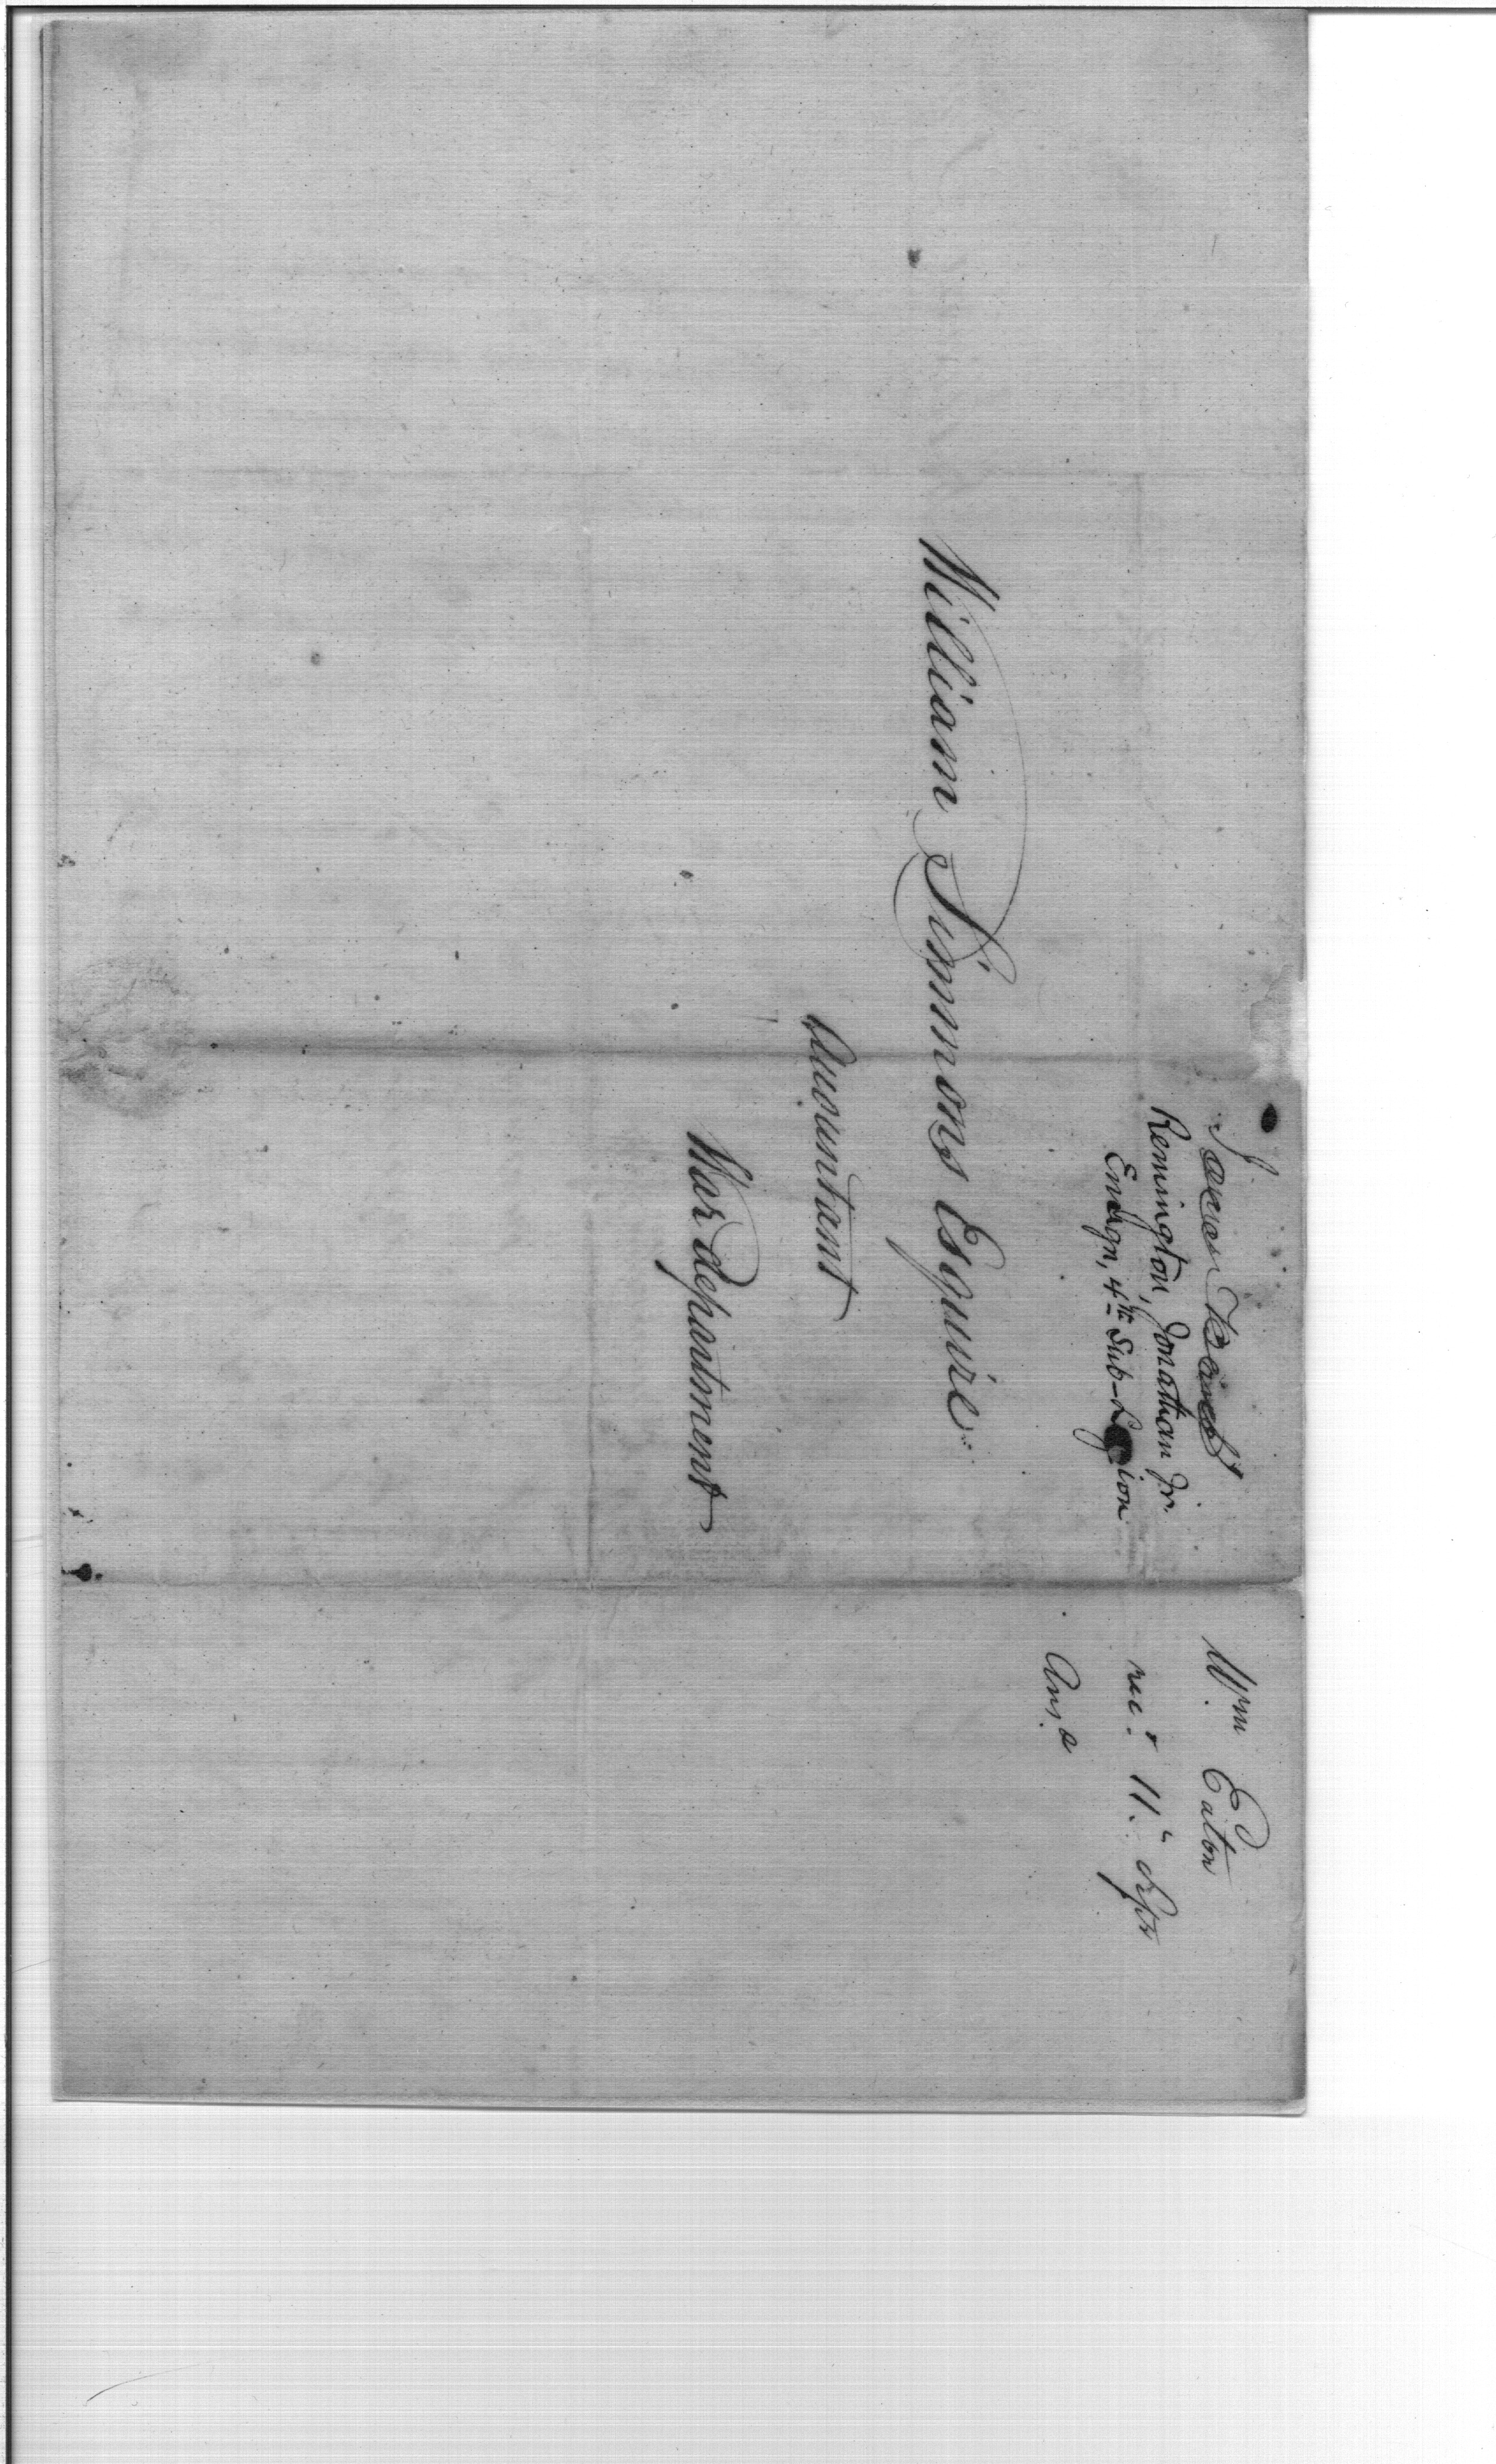 Remington, Jonathan Jr.
Ensign, 4th Sub-Legion
William Simmons Esquire
Accountant
War department
Wm Eaton
rec.d 11th Sept
Ans.d